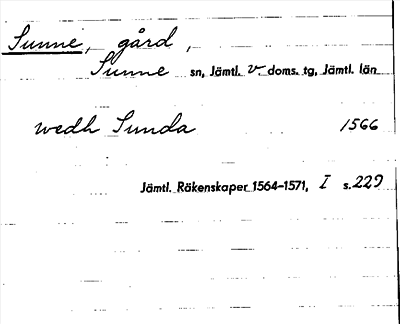 Sunne, gård,
Sunne sn, Jämtl. v. doms. tg, Jämtl. län
wedh Sunda 1566
Jämtl. Räkenskaper 1564-1571, I s. 229